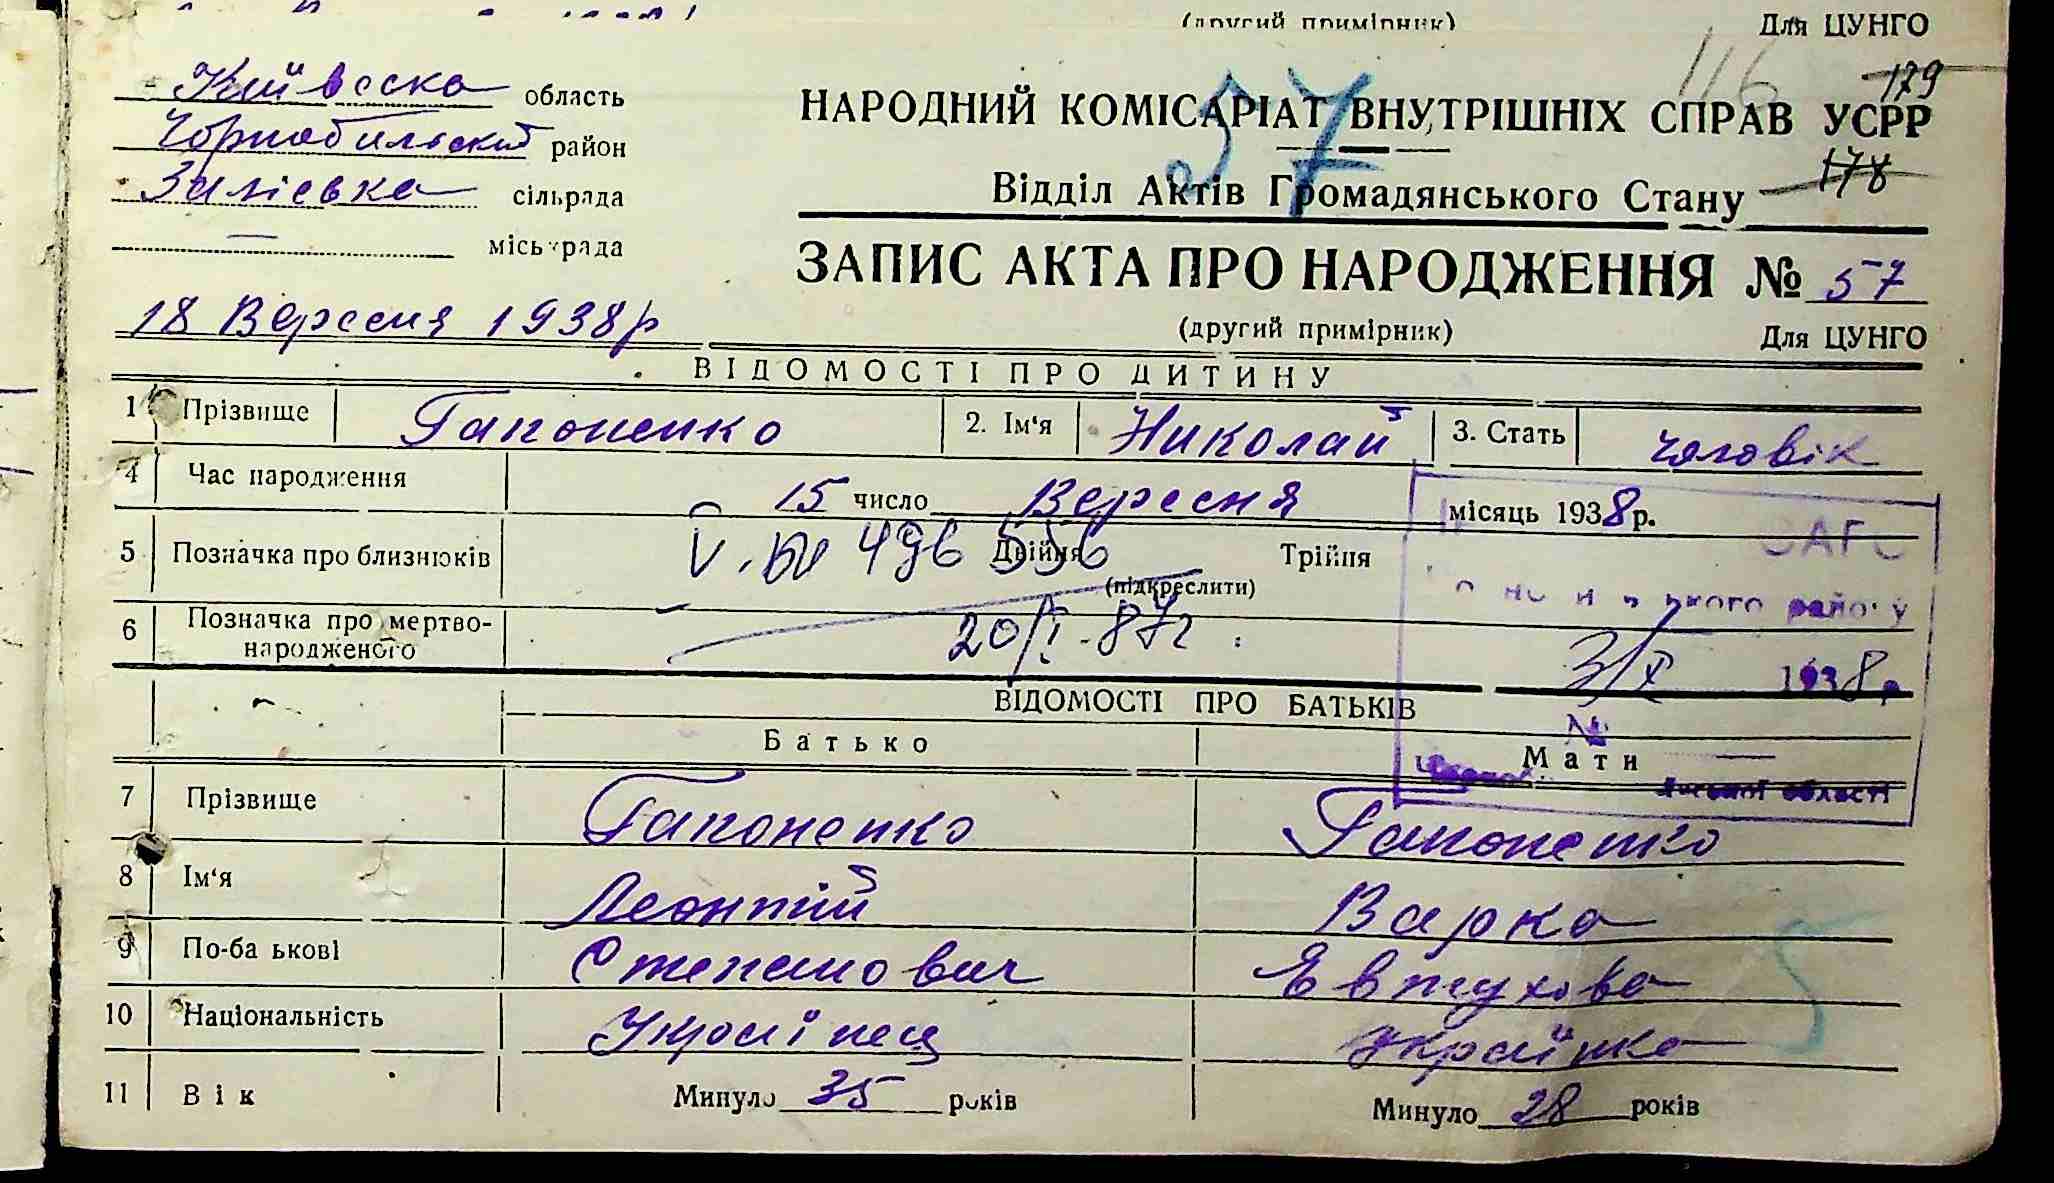 (другий примірник)
Для ЦУНГО
116
179
Київська область
Чорнобильский район
Залієвка сільрада
— міськрада
НАРОДНИЙ КОМІСАРІАТ ВНУТРІШНІХ СПРАВ УСРР
57
178
Відділ Актів Громадянського Стану
ЗАПИС АКТА ПРО НАРОДЖЕННЯ № 57
18 Вересня 1938р
(другий примірник)
Для ЦУНГО
ВІДОМОСТІ ПРО ДИТИНУ
1 Прізвище Гапоненко 2. Ім'я Николай 3. Стать чоловік
4 Час народження 15 число Вересня місяць 1938 р.
5 Позначка про близнюків Двійня Трійня
(підкреслити)
496 556
6 Позначка про мертво-
народженого
20/I-87г
ЗАГС
району
3/X 1938 р
№
області
ВІДОМОСТІ ПРО БАТЬКІВ
Батько Мати
7 Прізвище Гапоненко Гапоненко
8 Ім'я Леонтій Варка
9 По-ба ькові Степанович Евтухова
10 Національність Україпец Українка
11 Вік Минуло 35 років Минуло 28 років